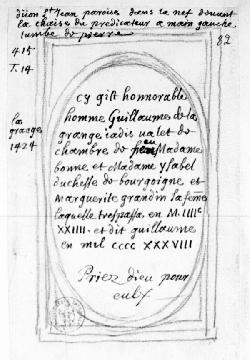 dijon st Jean paroisse dans la nef devant
la chaise du prédicateur a main gauche
tumbe de pierre
82
415
T. 14
la
grange
1424
cy gist honnorable
homme Guillaumes de la
grange iadis ualet de
chambre de feu Madame
bonne et Madame ysabel
duchesse de bourgoigne et
Marguerite grandin sa feme
laquelle trespassa en M. IIIIc
XXIIII. et dit guillaume
en mil cccc XXXVIII
Priez dieu pour
eulx